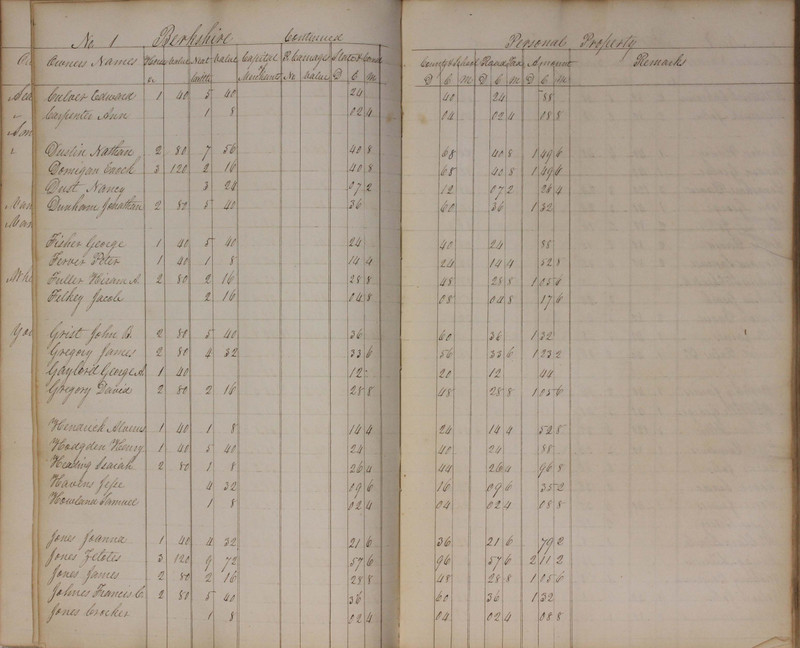 No 1 Berkshire Continued Personal Property
Owners Names Horses Value Neat Cattle Value Capital Merchants Carriages No Value State & County & School Road Tax Amount Remarks
D C M D C M D C M D C M
Culver Edward 1 40 5 40 24 40 24 88
Carpenter Ann 1 8 02 4 04 02 4 08 8
Dustin Nathan 2 80 7 56 40 8 68 40 8 1 49 6
Domigan Enoch 3 120 2 16 40 8 68 40 8 1 49 6
Dust Nancy 3 24 07 2 12 07 2 26 4
Dunham Jonathan 2 80 5 40 36 60 36 1 32
Fisher George 1 40 5 40 24 40 24 88
Ferver Peter 1 40 1 8 14 4 24 14 4 52 8
Fuller Hiram A. 2 80 2 16 28 8 48 28 8 1 05 6
Felkey Jacob 2 16 04 8 08 04 8 17 6
Grist John B. 2 80 5 40 36 60 36 1 32
Gregory James 2 80 4 32 33 6 56 33 6 1 23 2
Gaylord George A. 1 40 12 20 12 44
Gregory David 2 80 2 16 28 8 48 28 8 1 05 6
1 40 1 8 14 4 24 14 4 52 8
Hodgden Henry 1 40 5 40 24 40 24 88
Isaiah 2 80 1 8 26 4 44 26 4 96 8
Havens Jesse 4 32 09 6 16 09 6 35 2
Howland Samuel 1 8 02 4 04 02 4 08 8
Jones Joanna 1 40 4 32 21 6 36 21 6 79 2
Jones Zelotes 3 120 9 72 57 6 96 57 6 2 11 2
Jones James 2 80 2 16 28 8 48 28 8 1 05 6
Johnes Frances C. 2 80 5 40 36 60 36 1 32
Jones Crocker 1 8 02 4 04 02 4 08 8